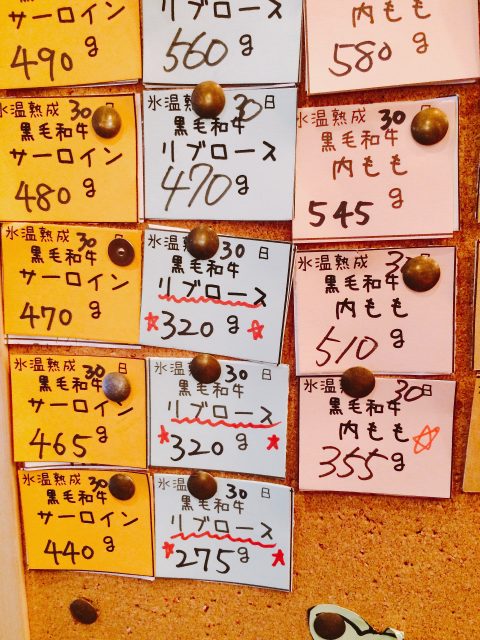 サーロイン
490g
氷温熟成 30日
黒毛和牛
サーロイン
480g
氷温熟成 30
黒毛和牛
サーロイン
470g
氷温熟成 30日
黒毛和牛
サーロイン
465g
氷温熟成 30
黒毛和牛
サーロイン
440g
リブロース
560g
氷温 30日
黒毛和牛
リブロース
470g
氷温 30日
黒毛和牛
リブロース
☆320g☆
氷温 30日
黒毛和牛
リブロース
★320g★
氷温 30日
黒毛和牛
リブロース
★275g★
内もも
580g
氷温熟成 30日
黒毛和牛
内もも
545g
氷温熟成 30
黒毛和牛
内もも
510g
氷温 30日
黒毛和牛
内もも☆
355g